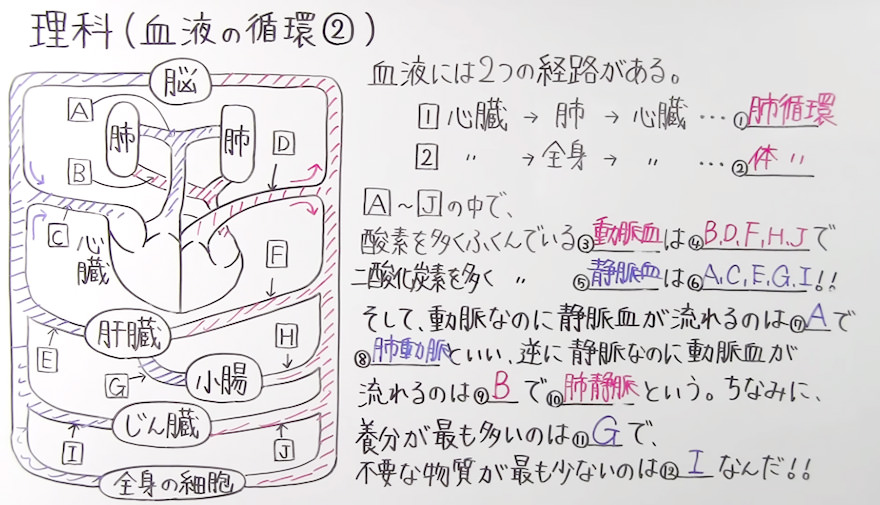 理科(血液の循環②)
脳
A
肺
肺
D
B
C
心臓
F
肝臓
H
E
G
小腸
じん臓
I
J
全身の細胞
血液には2つの経路がある。
1 心臓 → 肺 → 心臓 … ①肺循環
2 〃 → 全身 → 〃 … ②体〃
A~Jの中で、
酸素を多くふくんでいる③動脈血は④B,D,F,H,Jで
二酸化炭素を多く 〃 ⑤静脈血は⑥A,C,E,G,I!!
そして、動脈なのに静脈血が流れるのは⑦Aで
⑧肺動脈といい、逆に静脈なのに動脈血が
流れるのは⑨Bで⑩肺静脈という。ちなみに、
養分が最も多いのは⑪Gで、
不要な物質が最も少ないのは⑫Iなんだ!!